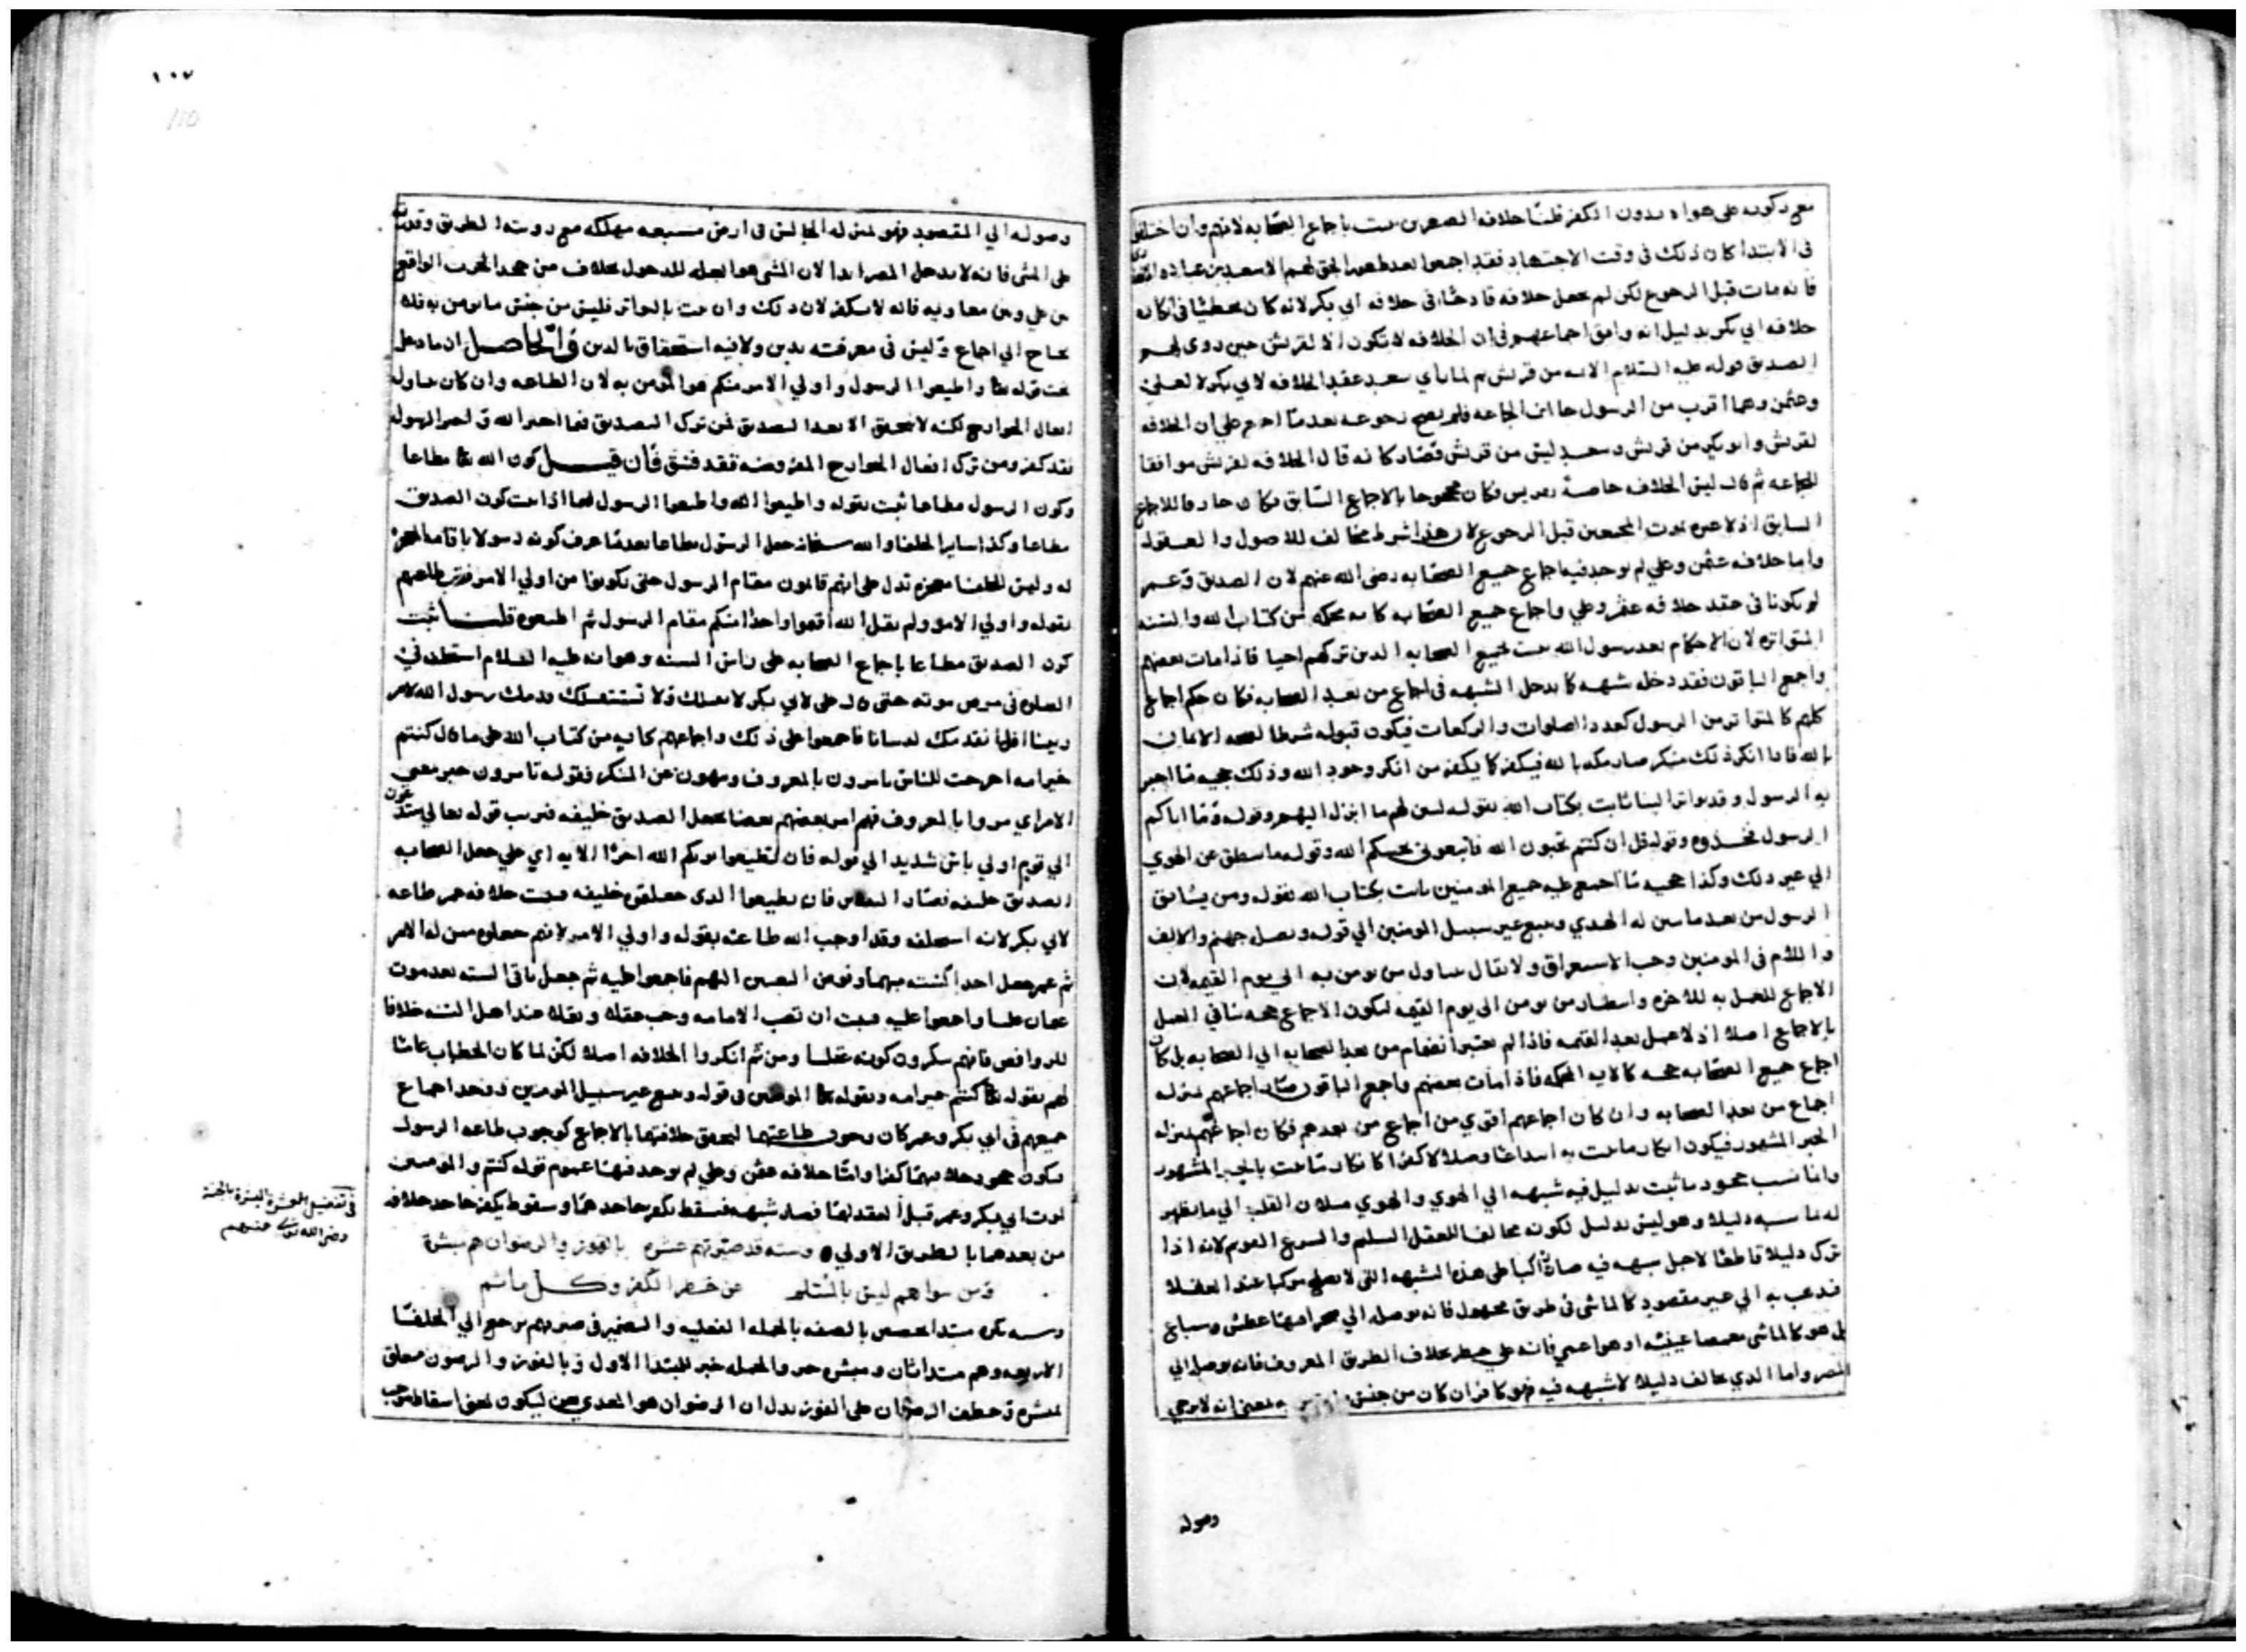 مع كونه على هواه بدون الكفر قلنا خلافة العمرين ثبت باجماع الصحابه لانهم وان اختلفوا
فى الابتدا كان ذلك فى وقت الاجتهاد فقد اجمعوا بعد ظهور الحق لهم الا سعد بن عباده
فانه مات قبل الرجوع لكن لم يجعل خلافه قادحا فى خلافه ابي بكر لانه كان مخطئا فى انكاره
خلافه ابي بكر بدليل انه وافق اجماعهم فى ان الخلافه لا تكون الا لقريش حين روى لهم
الصديق قوله عليه السلام الايمه من قريش ثم لما راي سعد عقد الخلافه لابي بكر لا لعلي
وعثمن وهما اقرب من الرسول خالف الجماعه فلم يصح رجوعه بعد ما اجمع على ان الخلافه
لقريش وابو بكر من قريش وسعد ليس من قريش فصار كانه قال الخلافه لقريش موافقا
للجماعه ثم قال ليس الخلافه خاصة بقريش فكان محجوجا بالاجماع السابق فكان خارقا للاجماع
السابق اذ لا عبره بموت المجمعين قبل الرجوع لان هذا شرط مخالف للاصول والعقول
واما خلافه عثمن وعلي لم يوجد فيها اجماع جميع الصحابه رضى الله عنهم لان الصديق وعمر
لم يكونا فى عقد خلافه عثمن وعلي واجماع جميع الصحابه كايه محكمه من كتاب الله والسنه
المتواتره لان الاحكام بعد رسول الله ثبت بجميع الصحابه الذين تركهم احيا فاذا مات بعضهم
واجمع الباقون فقد دخله شبهه كما يدخل الشبهه فى اجماع من بعد الصحابه فكان حكم اجماع
كلهم كالمتواتر من الرسول كعدد الصلوات والركعات فيكون قبوله شرطا لصحه الايمان
بالله فاذا انكر ذلك منكر صار منكر بالله فيكفر كما يكفر من انكر وجود الله وذلك حجيه ما اخبر
به الرسول وقد تواتر الينا ثابت بكتاب الله بقوله لتبين لهم ما انزل اليهم وقوله وما اتاكم
الرسول فخذوه وقوله قل ان كنتم تحبون الله فاتبعوني يحببكم الله وقوله ما ينطق عن الهوي
الي غير ذلك وكذا حجيه ما اجمع عليه جميع المومنين ثابت بكتاب الله بقوله ومن يشاقق
الرسول من بعد ما تبين له الهدي ويتبع غير سبيل المومنين الي قوله ونصله جهنم والالف
واللام فى المومنين وجب الاستغراق ولا يقال يتناول من يومن به الي يوم القيمه لان
الاجماع للعمل به للاخره وانتظار من يومن الى يوم القيمه ليكون الاجماع حجه ينافي العمل
بالاجماع اصلا اذ لا عمل بعد القيمه فاذا لم يعتبر انضمام من بعد الصحابه الي الصحابه بل كان
اجماع جميع الصحابه حجه كالايه المحكمه فاذا مات بعضهم واجمع الباقون صار اجماعهم بمنزله
اجماع من بعد الصحابه وان كان اجماعهم اقوي من اجماع من بعدهم فكان اجماعهم بمنزله
الخبر المشهور فيكون انكار ما ثبت به ابتداعا وضلالا كفرا كانكار ما ثبت بالخبر المشهور
وانما نسب جحود ما ثبت بدليل فيه شبهه الي الهوي والهوي ميلان القلب الي ما يظهر
له مناسبه دليلا وهو ليس بدليل لكونه مخالفا للعقل السليم والشرع القويم لانه اذا
ترك دليلا قاطعا لاجل شبهه فيه صار راكبا على هذه الشبهه التى لا يصلح مركبا عند العقلا
فذهب به الي غير مقصود كالماشى فى طريق مجهول فانه يوصله الي صحرا مهنا عطش وسباع
بل هو كالماشى مغمضا عينيه او هو اعمى فانه على خطر بخلاف الطريق المعروف فانه يوصل الي
المصر واما الذي خالف دليلا لا شبهه فيه فهو كافر ان كان من جنس ما يومن به بمعنى انه لا يرجي
وصوله
١٠٧
110
وصوله الي المقصود فهو بمنزله الجالس فى ارض مسبعه مهلكه مع رويته الطريق وقدرته
على المشى فانه لا يدخل المصر ابدا لان المشى هو العله للدخول بخلاف من جحد الحرب الواقع
من علي وبين معاويه فانه لا يكفر لان ذلك وان ثبت بالتواتر فليس من جنس ما يومن به فلا
يحتاج الي اجماع وليس فى معرفته بدين ولا فيه استحقاق بالدين فى الحاصل ان ما دخل
تحت قوله تعا واطيعوا الرسول واولي الامر منكم هو المومن به لان الطاعه وان كان يتناول
افعال الجوارح لكنه لا يتحقق الا بعد التصديق فمن ترك التصديق فيما اخبر الله واخبر الرسول
فقد كفر ومن ترك افعال الجوارح المفروضه فقد فسق فان قيل كون الله تعا مطاعا
وكون الرسول مطاعا ثبت بقوله واطيعوا الله واطيعوا الرسول فبماذا ثبت كون الصديق
مطاعا وكذا ساير الخلفا والله سبحانه جعل الرسول مطاعا بعد ما عرف كونه رسولا باقامه المعجزه
له وليس للخلفا معجزه تدل على انهم قايمون مقام الرسول حتى يكونوا من اولي الامر فترض طاعتهم
بقوله واولي الامر ولم يقل الله اقيموا واحدا منكم مقام الرسول ثم اطيعوه قلنا ثبت
كون الصديق مطاعا باجماع الصحابه على راس السنه وهو انه عليه السلام استخلفه في
الصلوه فى مرض موته حتى قال على لابي بكر لا نقيلك ولا نستقيلك قدمك رسول الله لامر
ديننا افلا نقدمك لدنيانا فاجمعوا على ذلك واجماعهم كايه من كتاب الله على ما قال كنتم
خير امه اخرجت للناس تامرون بالمعروف وتنهون عن المنكر فقوله تامرون خبر بمعنى
الامر اي مروا بالمعروف فهم امر بعضهم بعضا بجعل الصديق خليفه فترتب قوله تعالي ستدعون
الي قوم اولي باس شديد الي قوله فان تطيعوا يوتكم الله اجرا الايه اي على جعل الصحابه
الصديق خليفه فصار التقدير فان تطيعوا الذى جعلتموه خليفه فثبت خلافه عمر طاعه
لابي بكر لانه استخلفه وقد اوجب الله طاعته بقوله واولي الامر لانهم جعلوه ممن له الامر
ثم عمر جعل احدا كسته منهما وفوض التعيين اليهم فاجمعوا عليه ثم جعل باقى السته بعد موت
عثمان عليا واجمعوا عليه فثبت ان نصب الامامه وجب عقلا ونقلا عند اهل السنه خلافا
للروافض فانهم ينكرون كونه عقلا ومن ثم انكروا الخلافه اصلا لكن لما كان الخطاب عاما
لهم بقوله تعا كنتم خير امه وبقوله تعا المومنين فى قوله ويتبع غير سبيل المومنين فوجد اجماع
جميعهم فى ابي بكر وعمر كان وجوب طاعتهما لتحقق خلافتهما بالاجماع كوجوب طاعه الرسول
فيكون جحود خلافتهما كفرا واما خلافه عثمن وعلي لم يوجد فيها عموم قوله كنتم والمومنين
لموت ابي بكر وعمر قبل العقد لهما فصار شبهه فسقط تكفير جاحدهما وسقوط يكفر جاحد خلافه
من بعدهما بالطريق الاولي وسته قد صيرتهم عشره بالفوز والرضوان هم مبشره
ومن سواهم ليس بالمسلم عن خطر الكفر وكل ماثم
وسته نكره مبتدا تخصص بالصفه بالجمله الفعليه والضمير فى صيرتهم يرجع الي الخلفا
الاربعه وهم مبتدا ثان ومبشره خبر والجمله خبر للمبتدا الاول وبالفوز والرضوان متعلق
لمبشره وعطف الرضوان على الفوز يدل ان الرضوان هو المعدي بعن ليكون بمعنى اسقاط موجب
فى تفضيل العشرة المبشرة بالجنة
رضى الله تعالى عنهم